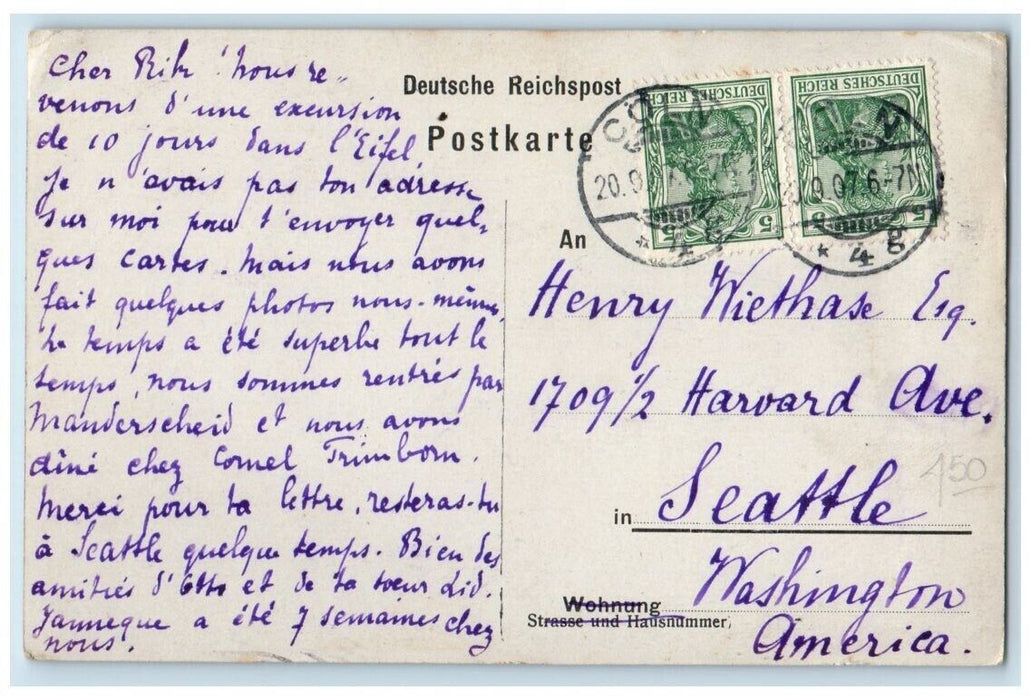 Cher Rik! nous re-
venons d'une excursion
de 10 jours dans l'Eifel,
Je n'avais pas ton adresse
sur moi pour t'envoyer quel-
ques cartes. Mais nous avons
fait quelques photos nous-mêmes,
le temps a été superbe tout le
temps, nous sommes rentrés par
Manderscheid et nous avons
dîné chez Cornel Trimborn.
Merci pour ta lettre, resteras-tu
à Seattle quelque temps. Bien des
amitiés d'Otto et de ta soeur Lid.
Janneque a été 7 semaines chez
nous.
Deutsche Reichspost
Postkarte
DEUTSCHES REICH
5 5
DEUTSCHES REICH
5 5
CÖLN
20.9
* 4 g
N
9.07.6-7N
* 4 g
An
Henry Wiethase Esq.
1709 1/2 Harvard Ave.
in Seattle
450
Washington
Wohnung
Strasse und Hausnummer
America.